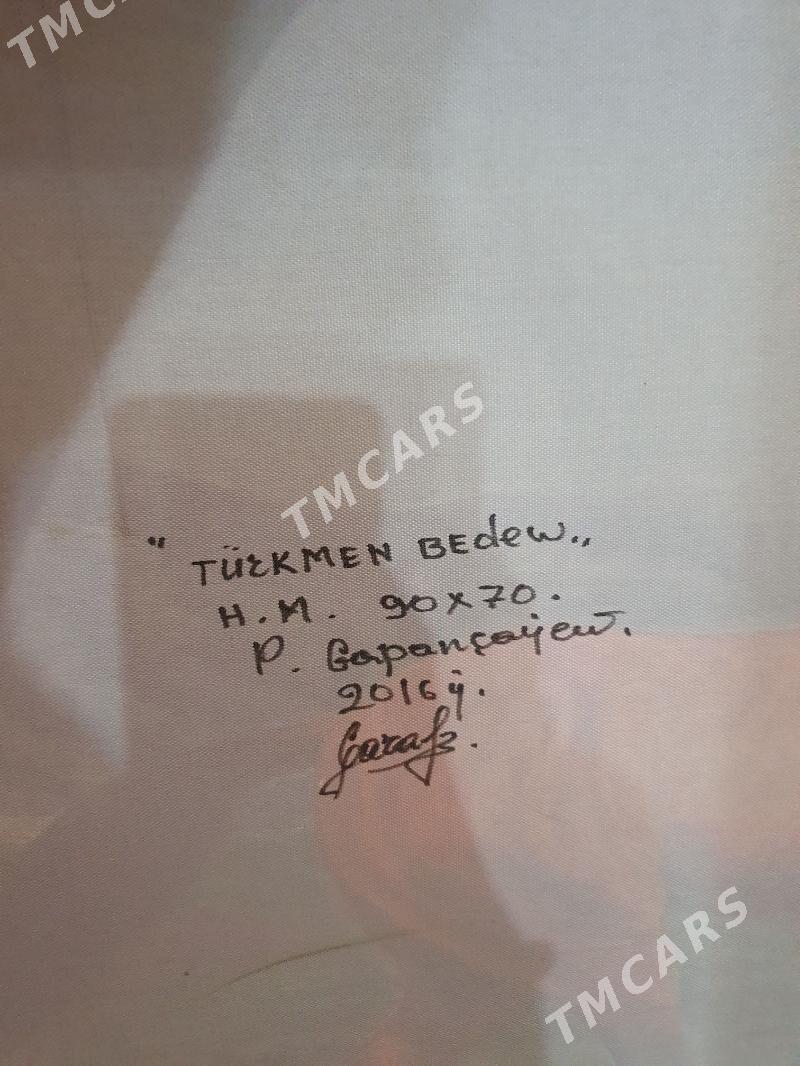 TMCARS
TMCARS
"TÜRKMEN BEdew"
H.M. 90x70.
P. Gapançaýew.
2016ý.
TMCARS